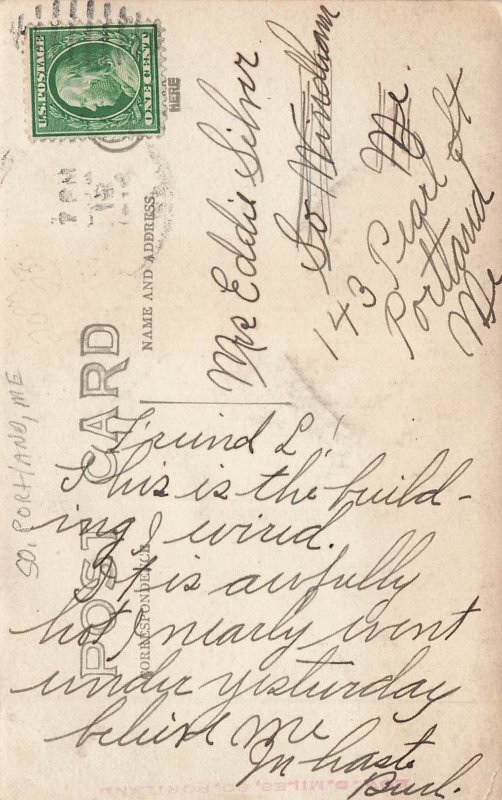 U.S. POSTAGE
ONE CENT
HERE
7 PM
POST CARD
NAME AND ADDRESS
CORRESPONDENCE
SO. PORTLAND, ME
Mrs Eddie Silver
So Windham
Me
143 Pearl St
Portland
Me
Friend L,
This is the build-
ing I wired.
It is awfully
hot, nearly went
under yesturday
believe me
In haste
D. MILES, SO. PORTLAND